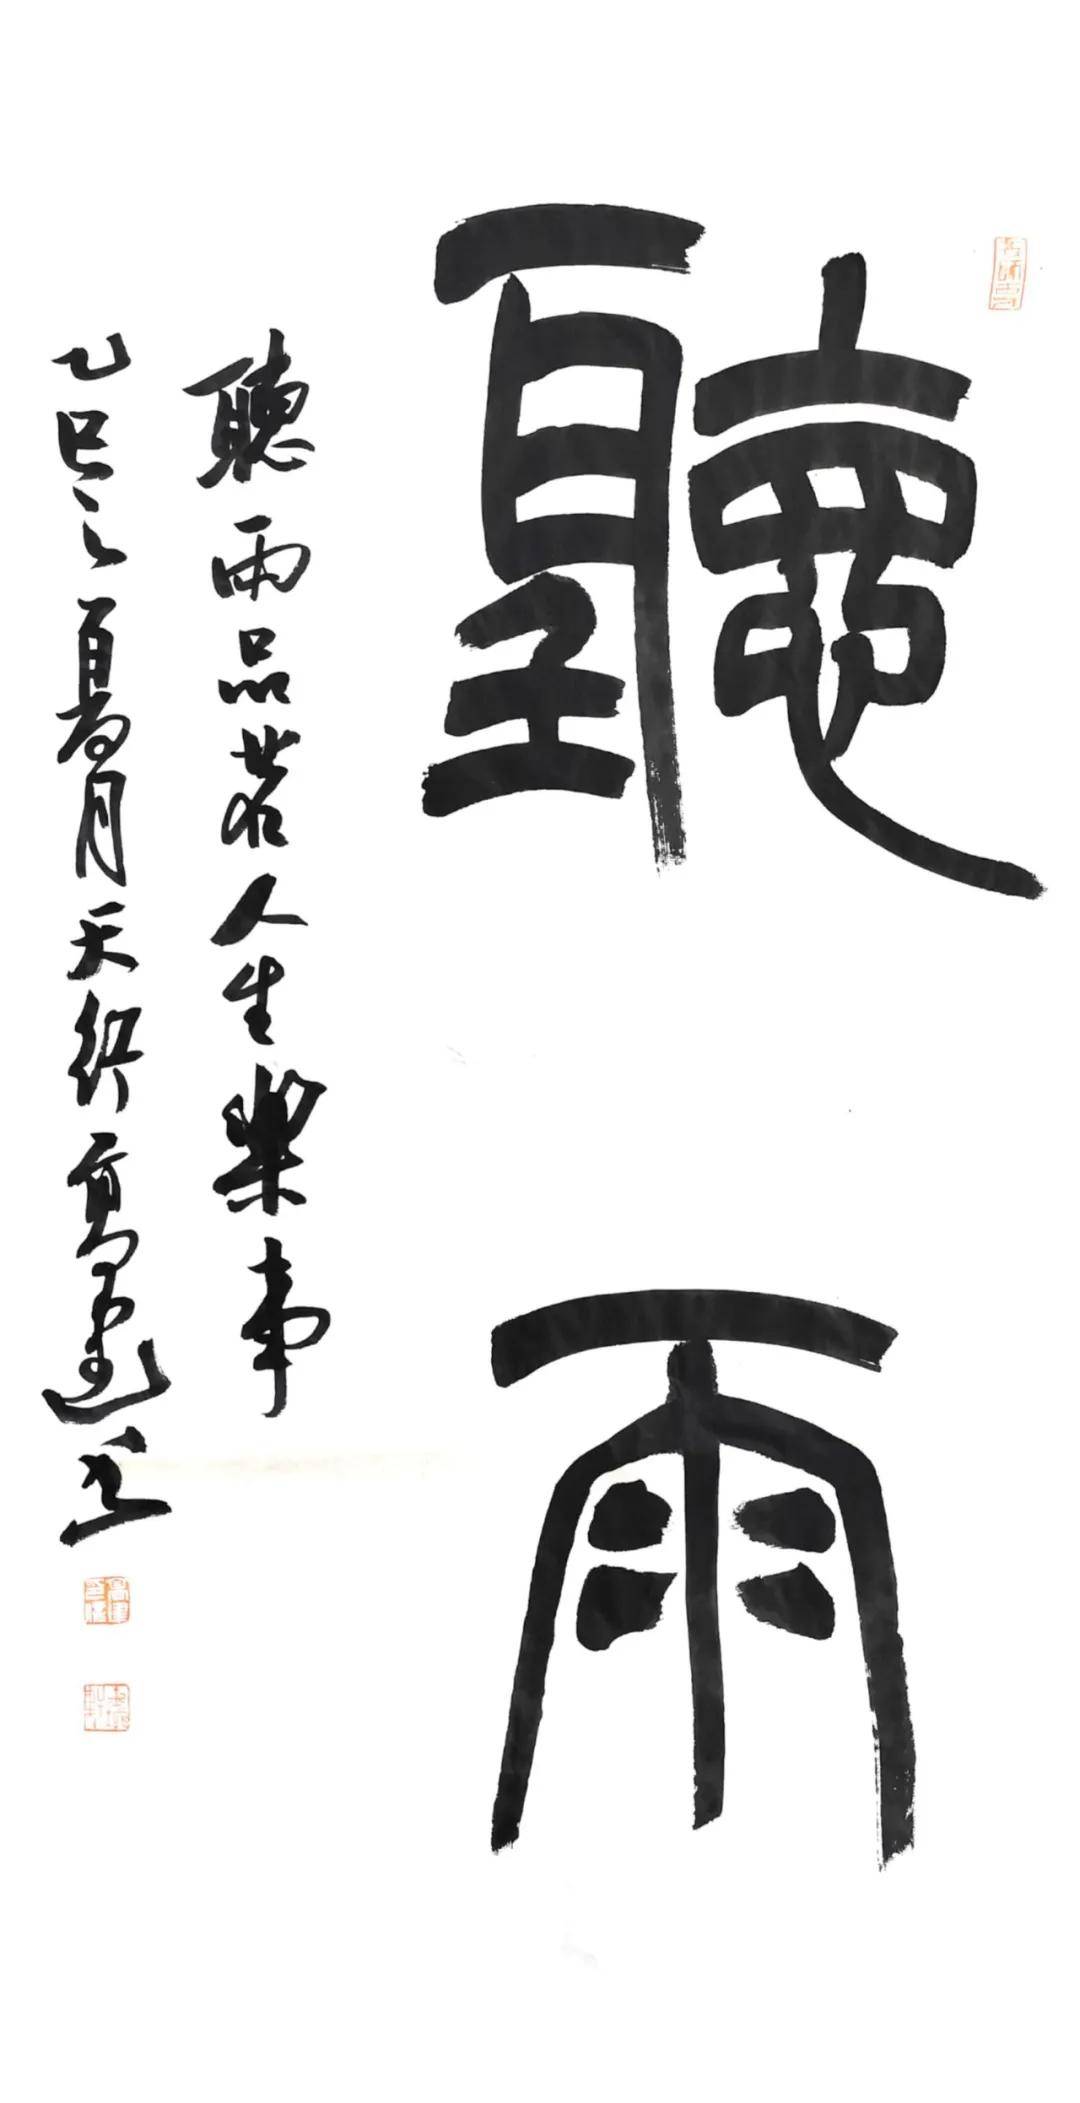 聽雨
聽雨品茗人生樂事
乙巳之夏月天行高建書